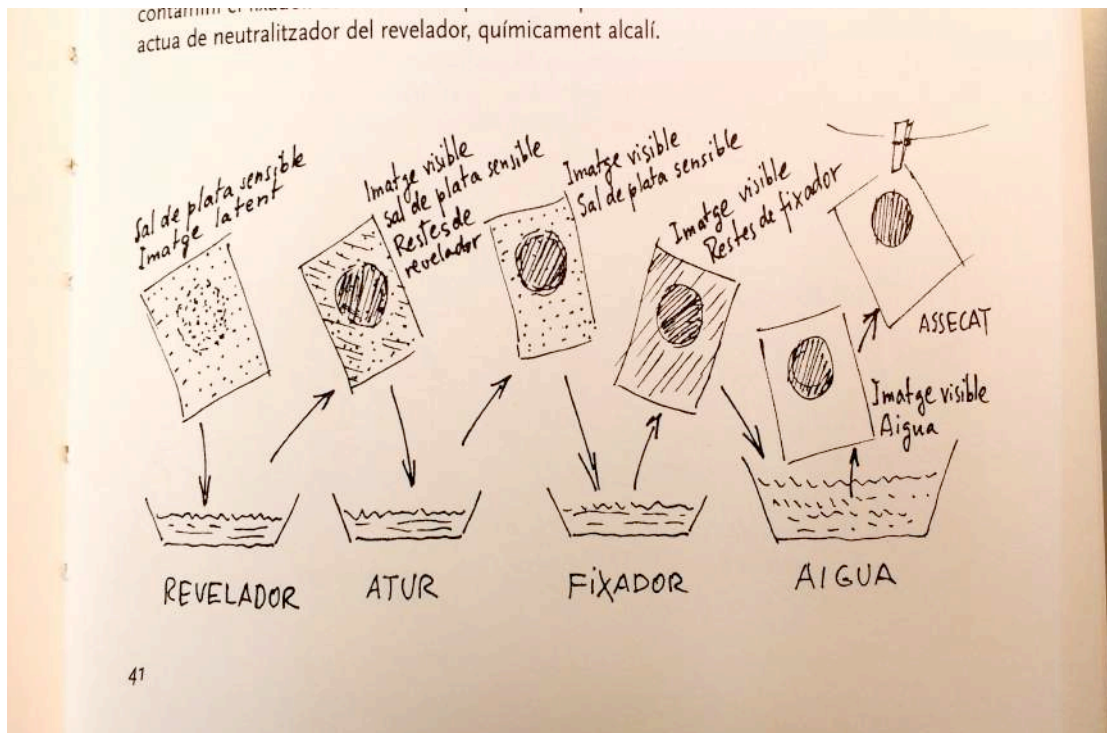 actua de neutralitzador del revelador, químicament alcalí.
Sal de plata sensible
Imatge latent
Imatge visible
Sal de plata sensible
Restes de
revelador
Imatge visible
Sal de plata sensible
Imatge visible
Restes de fixador
ASSECAT
Imatge visible
Aigua
REVELADOR
ATUR
FIXADOR
AIGUA
41